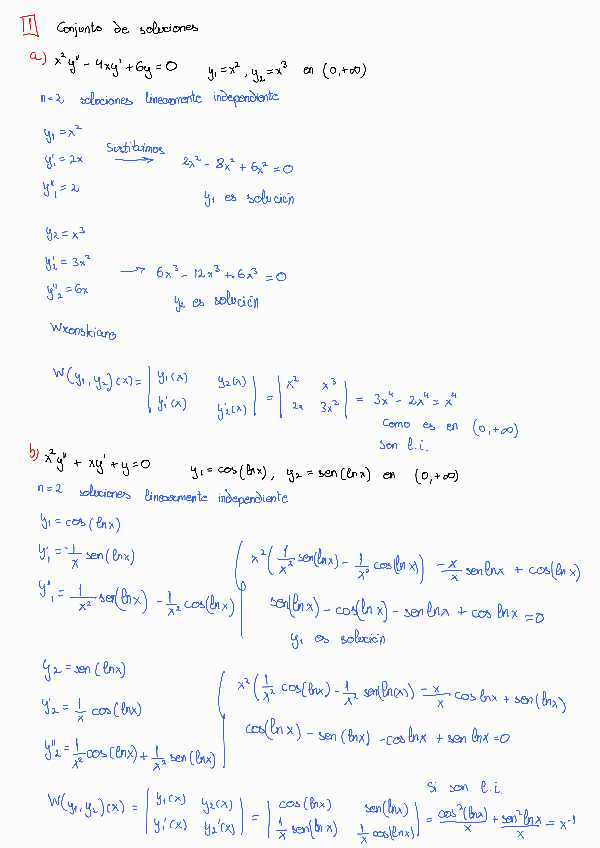 1 Conjunto de soluciones
a) x²y'' - 4xy' + 6y = 0 y₁ = x², y₂ = x³ en (0,+∞)
n=2 soluciones linealmente independiente
y₁ = x²
y'₁ = 2x Sustituimos → 2x² - 8x² + 6x² = 0
y''₁ = 2 y₁ es solución
y₂ = x³
y'₂ = 3x² → 6x³ - 12x³ + 6x³ = 0
y''₂ = 6x y₂ es solución
Wronskiano
W(y₁,y₂)(x) = | y₁(x) y₂(x) ; y₁'(x) y₂'(x) | = | x² x³ ; 2x 3x² | = 3x⁴ - 2x⁴ = x⁴
Como es en (0,+∞)
son l.i.
b) x²y'' + xy' + y = 0 y₁ = cos(lnx), y₂ = sen(lnx) en (0,+∞)
n=2 soluciones linealmente independiente
y₁ = cos(lnx)
y'₁ = -1/x sen(lnx) x²(1/x² sen(lnx) - 1/x² cos(lnx)) - x/x senlnx + cos(lnx)
y''₁ = 1/x² sen(lnx) - 1/x² cos(lnx) sen(lnx) - cos(lnx) - senlnx + cos lnx = 0
y₁ es solución
y₂ = sen(lnx) x²(1/x² cos(lnx) - 1/x² sen(lnx)) - x/x coslnx + sen(lnx)
y'₂ = 1/x cos(lnx)
y''₂ = 1/x² cos(lnx) + 1/x² sen(lnx) cos(lnx) - sen(lnx) - coslnx + sen lnx = 0
Si son l.i.
W(y₁,y₂)(x) = | y₁(x) y₂(x) ; y₁'(x) y₂'(x) | = | cos(lnx) sen(lnx) ; 1/x sen(lnx) 1/x cos(lnx) | = cos²(lnx)/x + sen²lnx/x = x⁻¹